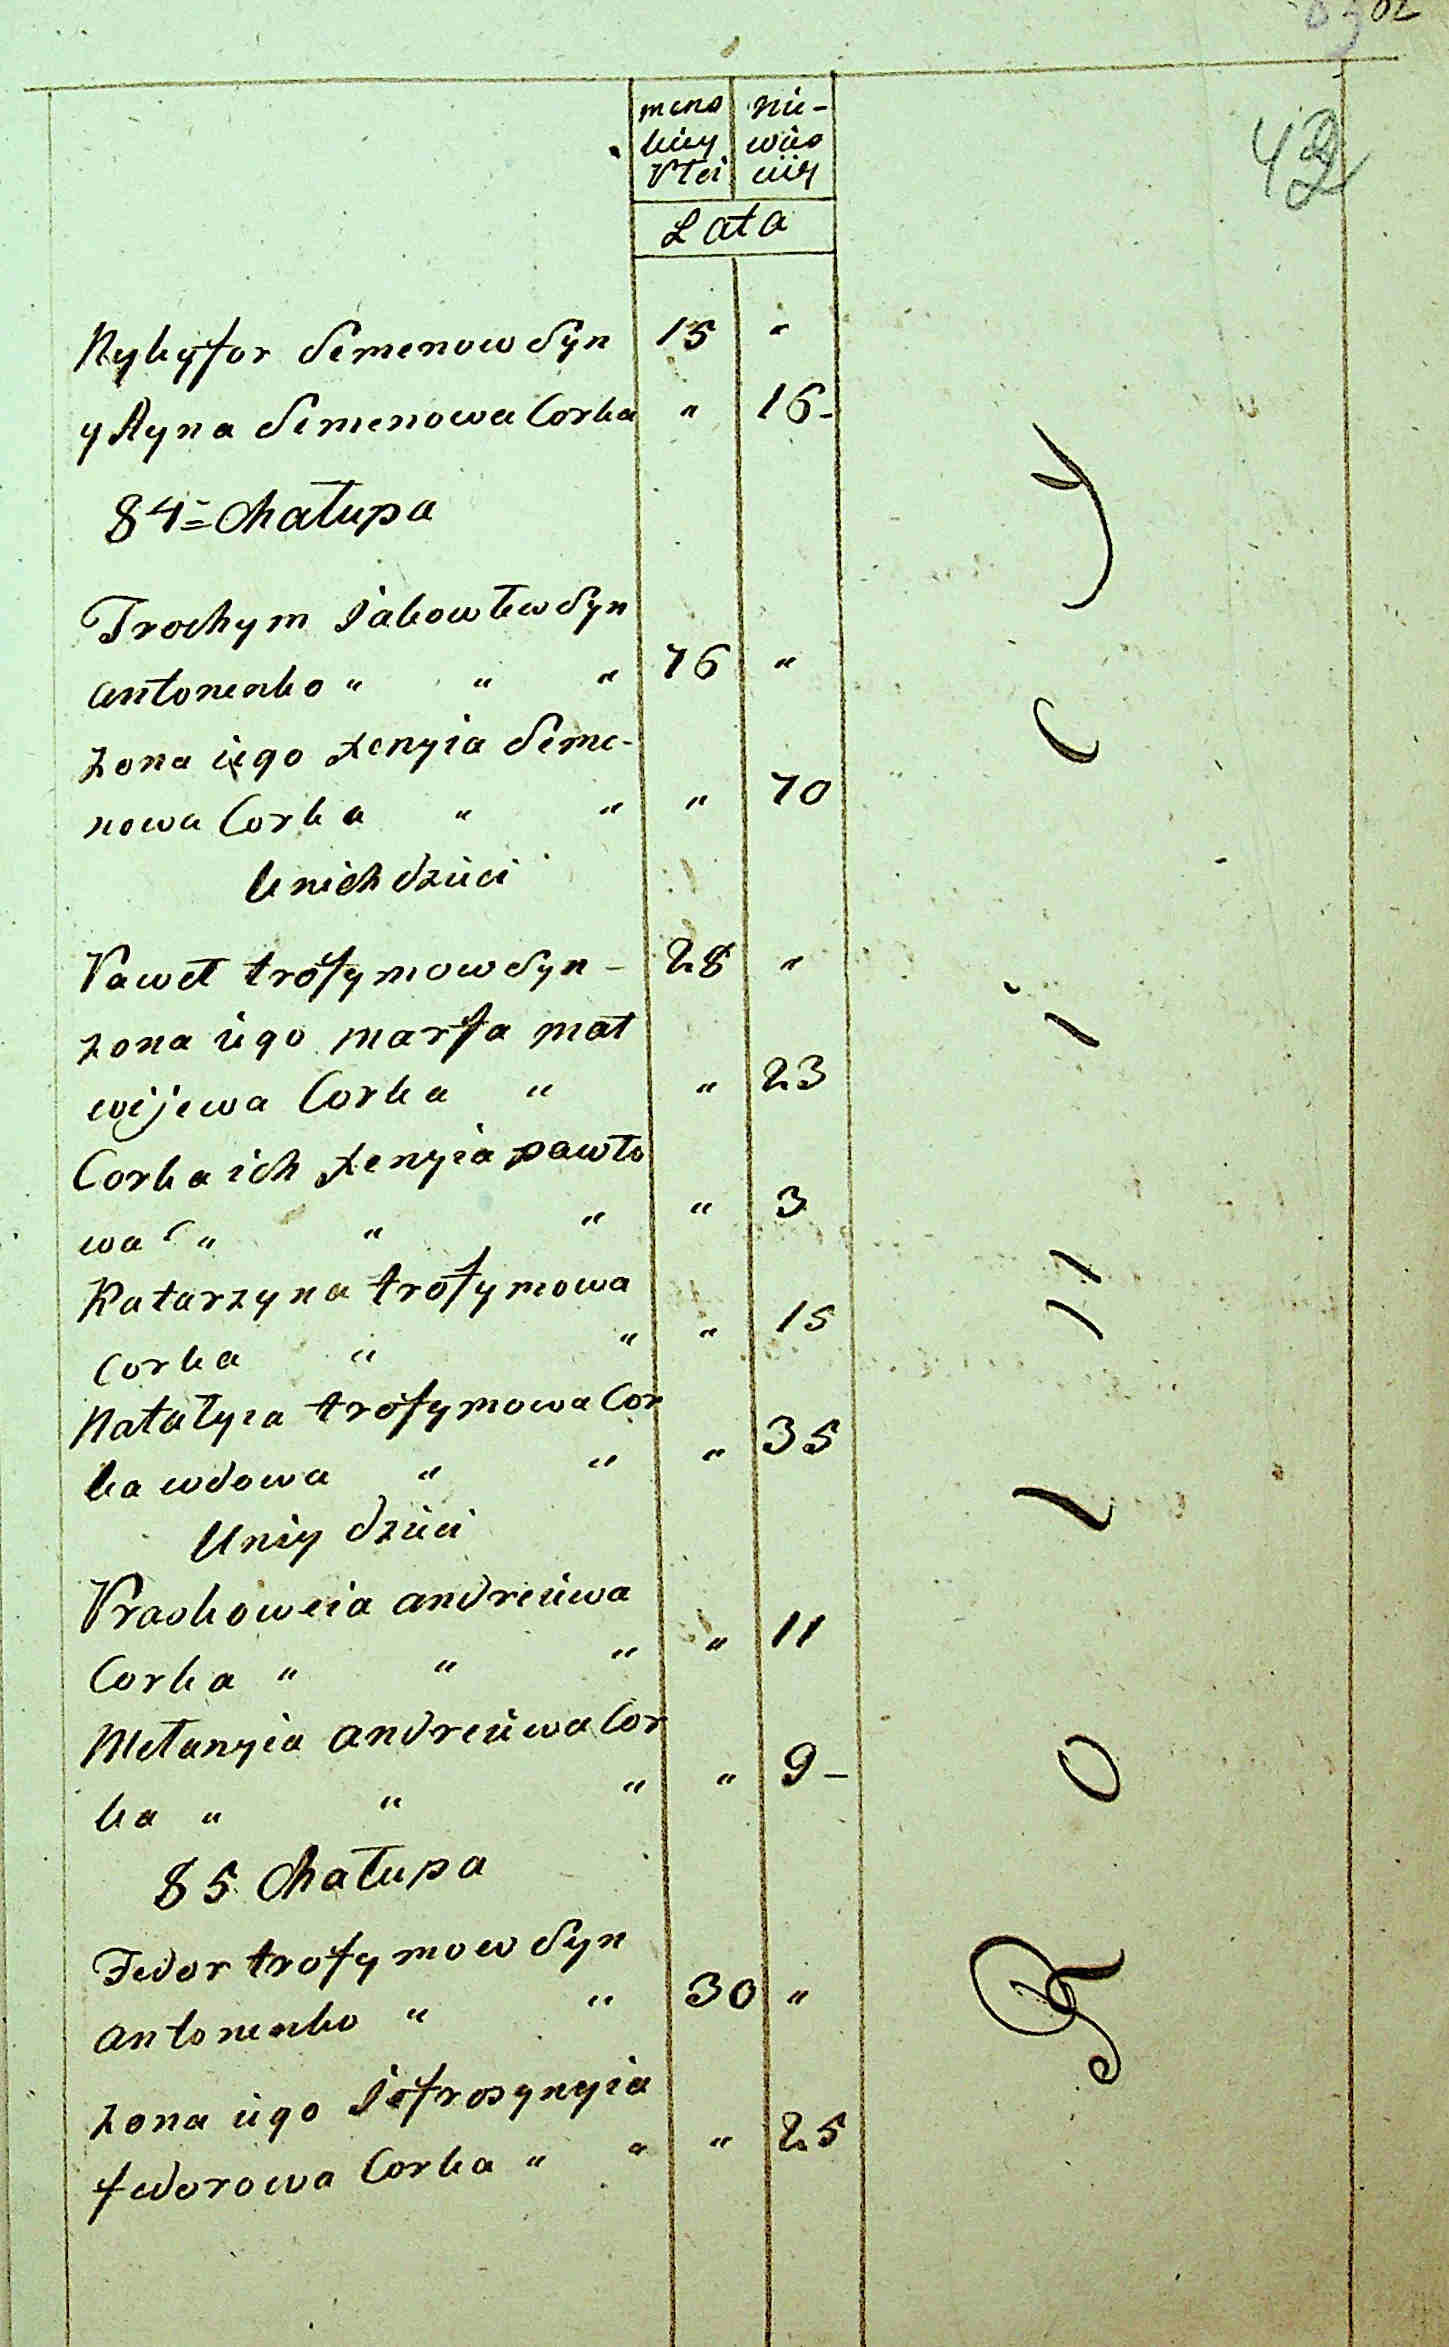 42
mens
kiey
Płci
nie-
wies
ciey
Lata
Nykyfor Semenow Syn 15 "
y Ryna Semenowa Corka " 16-
84= Chałupa
Trochym Jakowlew Syn
antonenko " " " 76 "
zona iego xenyia Seme-
nowa Corka " " " 70
U nich dzieci
Paweł trofymow Syn - 28 "
zona iego marfa mat
wijewa Corka " " 23
Corka ich xenyia pawło
wa C " " " " 3
Katarzyna trofymowa
Corka " " " 15
Natałyia trofymowa Cor
ka wdowa " " " 35
U niey dzieci
Praskoweia andreiewa
Corka " " " " 11
Mełanyia andreiewa Cor
ka " " " " 9-
85 Chałupa
Fedor trofymow Syn
antonenko " " 30 "
zona iego Jefrosynyia
fedorowa Corka " " " 25